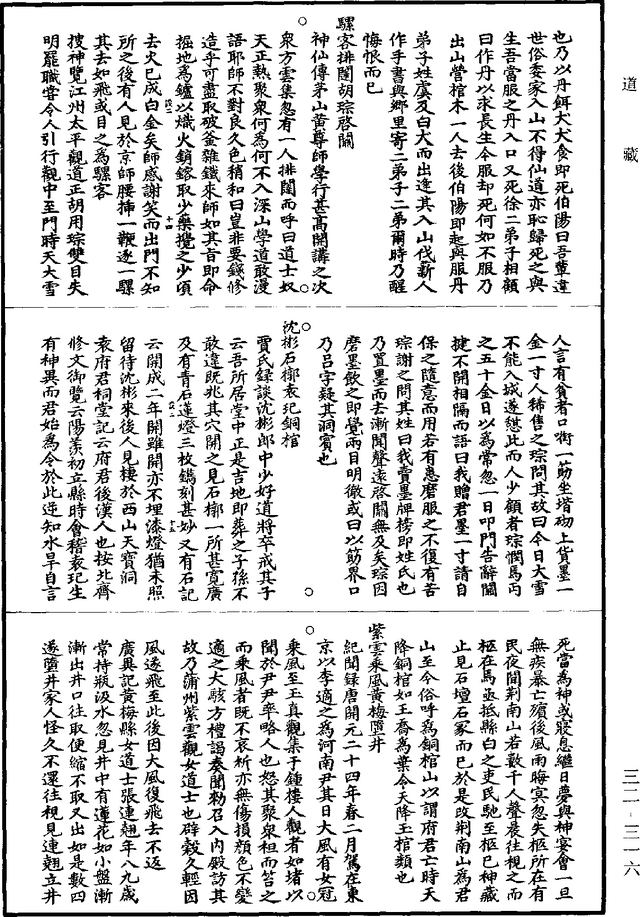 道藏
三二-三一六
也乃以丹餌犬犬食即死伯陽曰吾輩違
世俗委家入山不得仙道亦恥歸死之與
生吾當服之丹入口又死徐二弟子相顧
曰作丹以求長生今服却死何如不服乃
出山營棺木一人去後伯陽即起與服丹
弟子姓虞及白犬而出逢其入山伐薪人
作手書與鄉里寄二弟子二弟爾時乃醒
悔恨而已
騾客排闥胡琮啓關
神仙傳茅山黄尊師學行甚高開講之次
衆方雲集忽有一人排闥而呼曰道士奴
天正熱聚衆何為何不入深山學道敢漫
語耶師不對良久色稍和曰豈非要錢修
造乎可盡取破釜雜鐵來師如其言即命
掘地為鑪以熾火銷鎔取少藥攪之少頃
去火已成白金矣師感謝笑而出門不知
所之後有人見於京師腰揷一鞭逐一騾
其去如飛或目之為騾客
搜神覽江州太平觀道正胡用琮雙目失
明罷職嘗令人引行觀中至門時天大雪
人言有貧者口㗸一筯坐堦砌上貨墨一
金一寸人稀售之琮問其故曰今日大雪
不能入城遂慭此而人少顧者琮憫焉丙
之五十金日以為常忽一日叩門告辭關
揵不開相隔而語曰我贈君墨一寸請自
保之隨意而用若有患磨服之不復有苦
琮謝之問其姓曰我賣墨牌榜即姓氏也
乃置墨而去漸聞聲遠啓關無及矣琮因
磨墨飲之即覺兩目明徹或曰以筯界口
乃吕字疑其洞賓也
沈彬石槨袁玘銅棺
賈氏録談沈彬郎中少好道將卒戒其子
云吾所居堂中正是吉地即葬之子孫不
敢違既兆其穴開之見石槨一所甚寛廣
及有青石蓮燈三枚鐫刻甚妙又有石記
云開成二年開雖開亦不埋漆燈猶未照
留待沈彬來後人見樓於西山天寶洞
袁府君祠堂記云府君後漢人也按北齊
修文御覽云陽羨初立縣時會稽袁玘生
有神異而君始為令於此逆知水旱自言
死當為神或寢息繼日夢與神宴會一旦
無疾暴亡殯後風雨晦㝠忽失柩所在有
民夜聞荆南山若數千人聲晨往視之而
柩在焉亟抵縣白之吏民馳至柩已神藏
止見石壇石冢而已於是改荆南山為君
山至今俗呼為銅棺山以謂府君亡時天
降銅棺如王喬為葉令天降玉棺類也
紫雲乘風黄梅墮井
紀聞録唐開元二十四年春二月駕在東
京以李適之為河南尹其日大風有女冠
乘風至玉真觀集于鍾樓人觀者如堵以
聞於尹尹卒略人也怒其聚衆袒而笞之
而乘風者既不哀祈亦無傷損顔色不變
適之大駭方禮謁奏聞勑召入内殿訪其
故乃蒲州紫雲觀女道士也辟穀久輕因
風遂飛至此後因大風復飛去不返
廣異記黄梅縣女道士張連翹年八九歲
常持瓶汲水忽見井中有蓮花如小盤漸
漸出井口往取便縮不取又出如是數四
遂墮井家人怪久不還往視見連翹立井